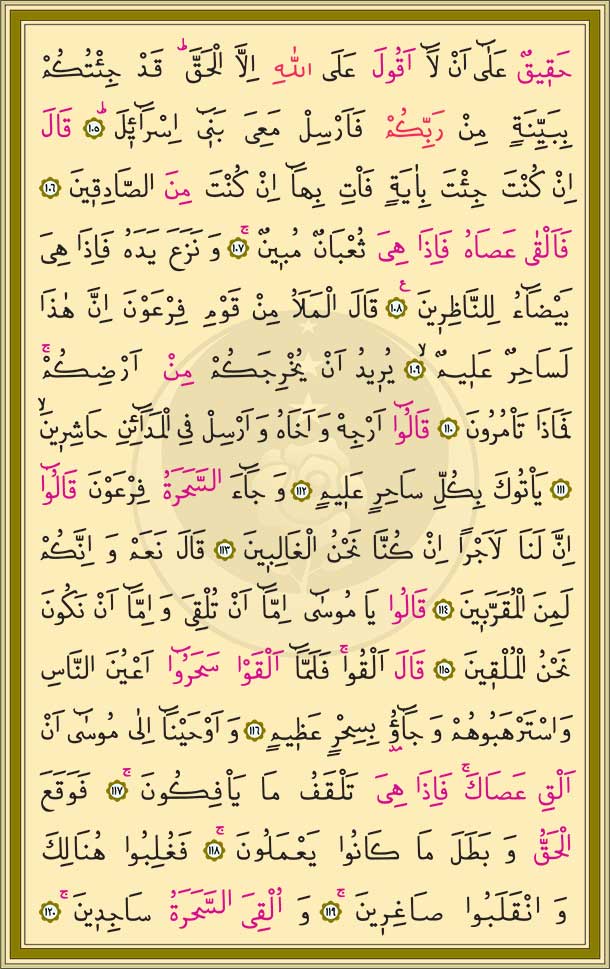 حَقٖيقٌ عَلٰٓى اَنْ لَٓا اَقُولَ عَلَى اللّٰهِ اِلَّا الْحَقَّؕ قَدْ جِئْتُكُمْ
بِبَيِّنَةٍ مِنْ رَبِّكُمْ فَاَرْسِلْ مَعِيَ بَنٖٓي اِسْرَٓائٖلَؕ ﴿١٠٥﴾ قَالَ
اِنْ كُنْتَ جِئْتَ بِاٰيَةٍ فَأْتِ بِهَٓا اِنْ كُنْتَ مِنَ الصَّادِقٖينَ ﴿١٠٦﴾
فَاَلْقٰى عَصَاهُ فَاِذَا هِيَ ثُعْبَانٌ مُبٖينٌۚ ﴿١٠٧﴾ وَ نَزَعَ يَدَهُ فَاِذَا هِيَ
بَيْضَٓاءُ لِلنَّاظِرٖينَ ࣖ ﴿١٠٨﴾ قَالَ الْمَلَاُ مِنْ قَوْمِ فِرْعَوْنَ اِنَّ هٰذَا
لَسَاحِرٌ عَلٖيمٌۙ ﴿١٠٩﴾ يُرٖيدُ اَنْ يُخْرِجَكُمْ مِنْ اَرْضِكُمْۚ
فَمَاذَا تَأْمُرُونَ ﴿١١٠﴾ قَالُٓوا اَرْجِهْ وَ اَخَاهُ وَ اَرْسِلْ فِي الْمَدَٓائِنِ حَاشِرٖينَۙ
﴿١١١﴾ يَأْتُوكَ بِكُلِّ سَاحِرٍ عَلٖيمٍ ﴿١١٢﴾ وَ جَٓاءَ السَّحَرَةُ فِرْعَوْنَ قَالُٓوا
اِنَّ لَنَا لَاَجْراً اِنْ كُنَّا نَحْنُ الْغَالِبٖينَ ﴿١١٣﴾ قَالَ نَعَمْ وَ اِنَّكُمْ
لَمِنَ الْمُقَرَّبٖينَ ﴿١١٤﴾ قَالُوا يَا مُوسٰٓى اِمَّٓا اَنْ تُلْقِيَ وَ اِمَّٓا اَنْ نَكُونَ
نَحْنُ الْمُلْقٖينَ ﴿١١٥﴾ قَالَ اَلْقُواۚ فَلَمَّٓا اَلْقَوْا سَحَرُٓوا اَعْيُنَ النَّاسِ
وَ اسْتَرْهَبُوهُمْ وَ جَٓاؤُ۫ بِسِحْرٍ عَظٖيمٍ ﴿١١٦﴾ وَ اَوْحَيْنَٓا اِلٰى مُوسٰٓى اَنْ
اَلْقِ عَصَاكَۚ فَاِذَا هِيَ تَلْقَفُ مَا يَأْفِكُونَۚ ﴿١١٧﴾ فَوَقَعَ
الْحَقُّ وَ بَطَلَ مَا كَانُوا يَعْمَلُونَۚ ﴿١١٨﴾ فَغُلِبُوا هُنَالِكَ
وَ انْقَلَبُوا صَاغِرٖينَۚ ﴿١١٩﴾ وَ اُلْقِيَ السَّحَرَةُ سَاجِدٖينَۚ ﴿١٢٠﴾